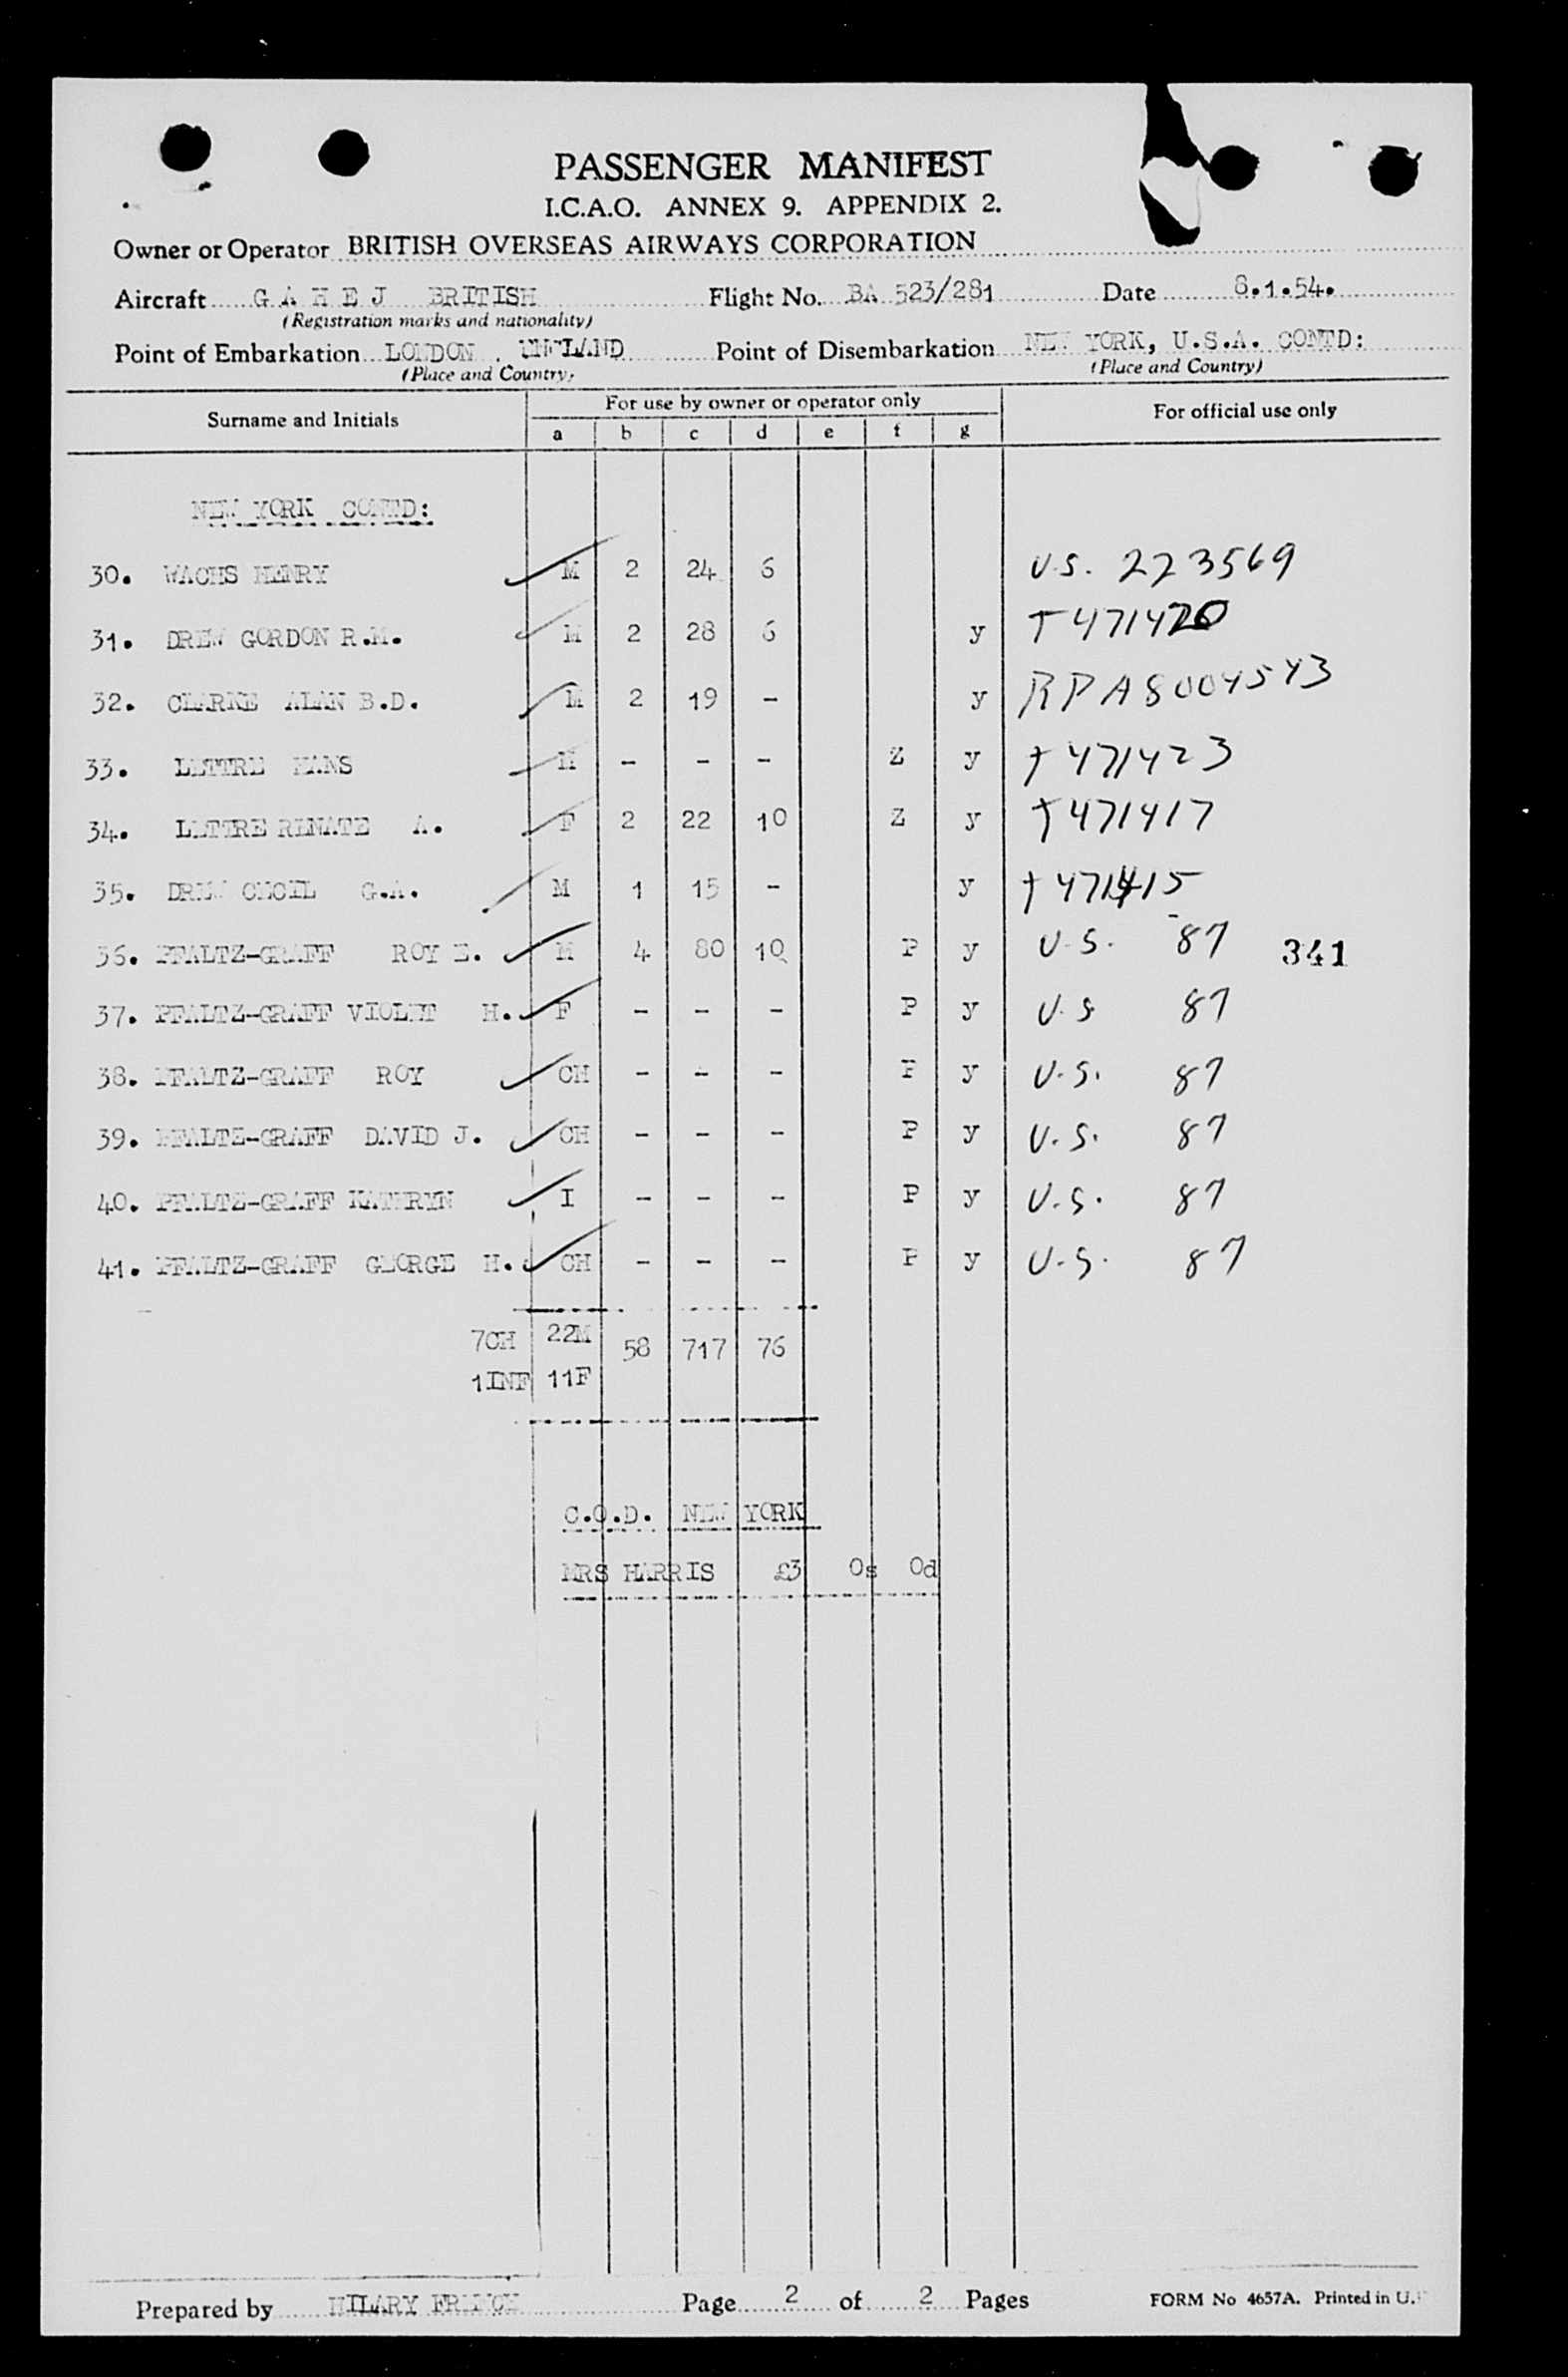 PASSENGER MANIFEST
I.C.A.O. ANNEX 9. APPENDIX 2.
Owner or Operator BRITISH OVERSEAS AIRWAYS CORPORATION
Aircraft G A H E J BRITISH Flight No. BA 523/281 Date 8.1.54.
(Registration marks and nationality)
Point of Embarkation LONDON . ENGLAND Point of Disembarkation NEW YORK, U.S.A. CONTD:
(Place and Country) (Place and Country)
Surname and Initials For use by owner or operator only For official use only
a b c d e f g
NEW YORK CONTD:
30. WACHS HENRY M 2 24 6 U.S. 223569
31. DREW GORDON R.M. M 2 28 6 y T471420
32. CLARKE ALAN B.D. M 2 19 - y RPA8004543
33. LETTRE HANS M - - - Z y T471423
34. LETTRE RENATE A. F 2 22 10 Z y T471417
35. DREW CECIL G.A. M 1 15 - y T471415
36. PFALTZ-GRAFF ROY E. M 4 80 10 P y U.S. 87 341
37. PFALTZ-GRAFF VIOLET H. F - - - P y U.S 87
38. PFALTZ-GRAFF ROY CH - - - P y U.S. 87
39. PFALTZ-GRAFF DAVID J. CH - - - P y U.S. 87
40. PFALTZ-GRAFF KATHRYN I - - - P y U.S. 87
41. PFALTZ-GRAFF GEORGE H. CH - - - P y U.S. 87
7CH 22M 58 717 76
1INF 11F
C.O.D. NEW YORK
MRS HARRIS £3 0s 0d
Prepared by HILARY FRENCH Page 2 of 2 Pages FORM No 4657A. Printed in U.